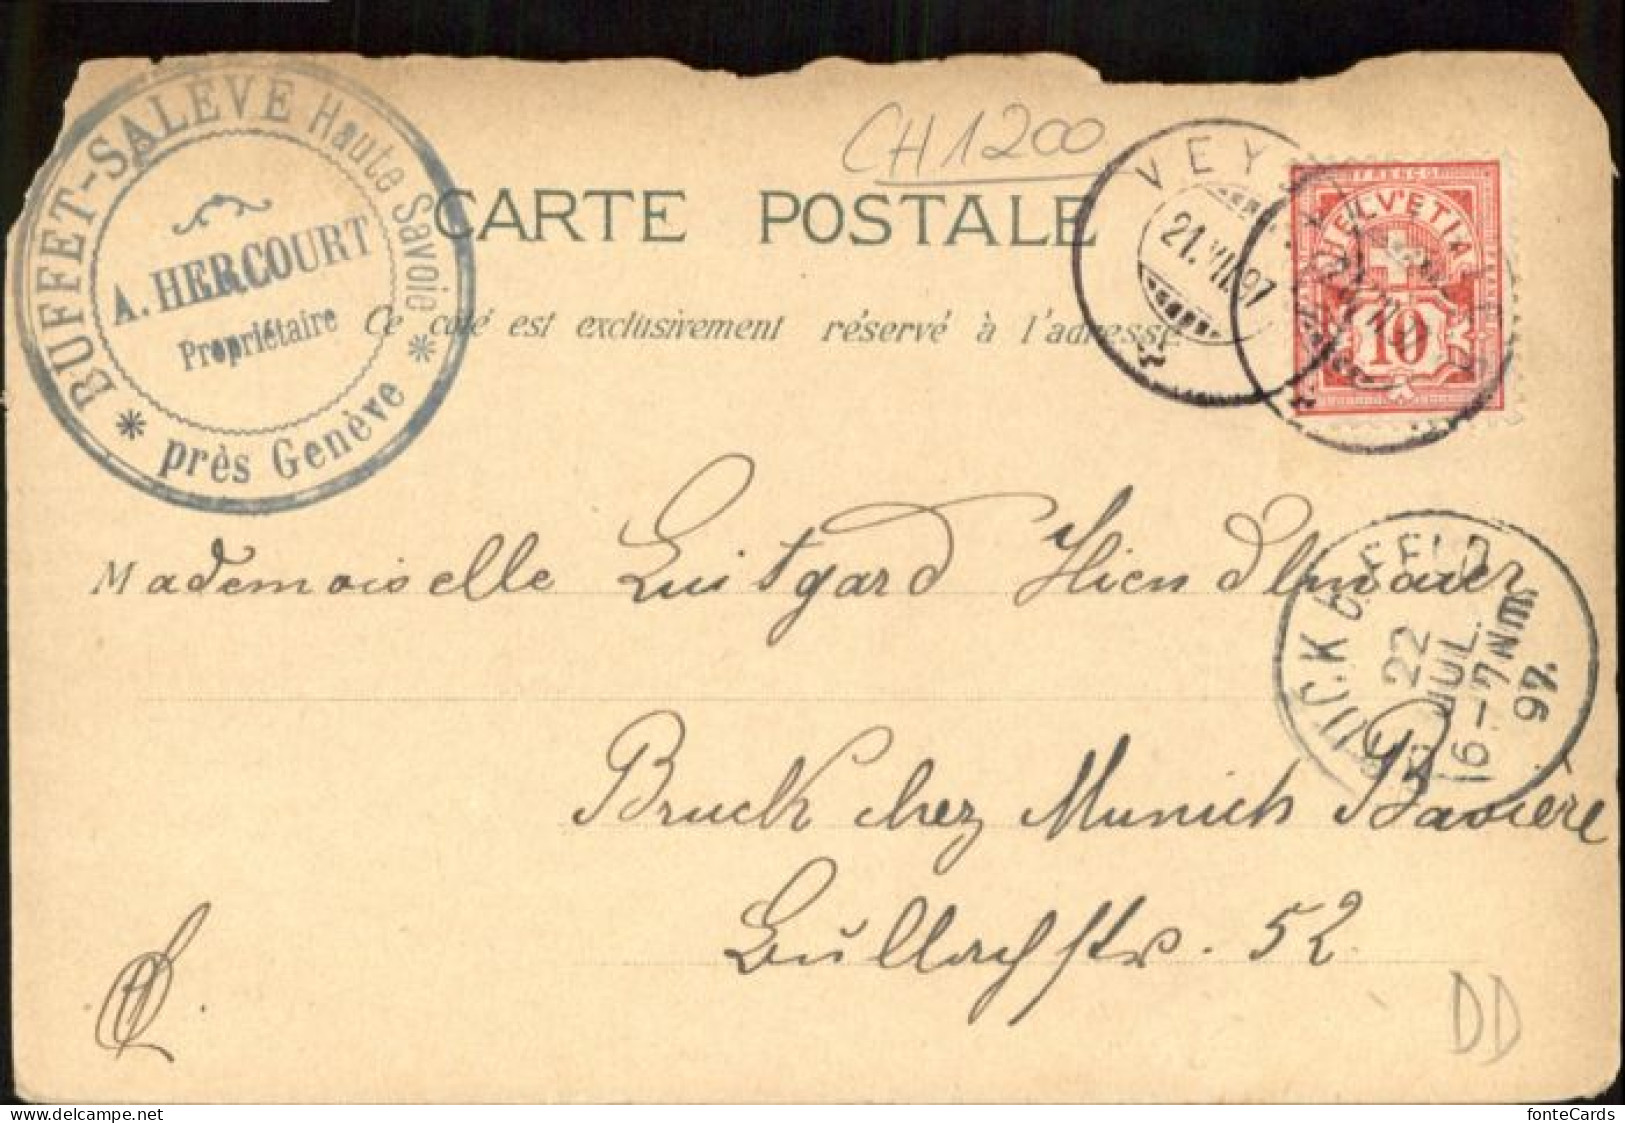 BUFFET-SALÈVE Haute Savoie
A. HERCOURT
Propriétaire
* près Genève *
CH 1200
CARTE POSTALE
Ce côté est exclusivement réservé à l'adresse
VEY
21.VII.97
FRANCO
HELVETIA
10
Mademoiselle Luitgard Hiendlmaier
BRUCK B. FFLD.
22
JUL.
6-7 NM.
97.
Bruck chez Munich Bavière
Gullachstr. 52.
DD
fonteCards
www.delcampe.net